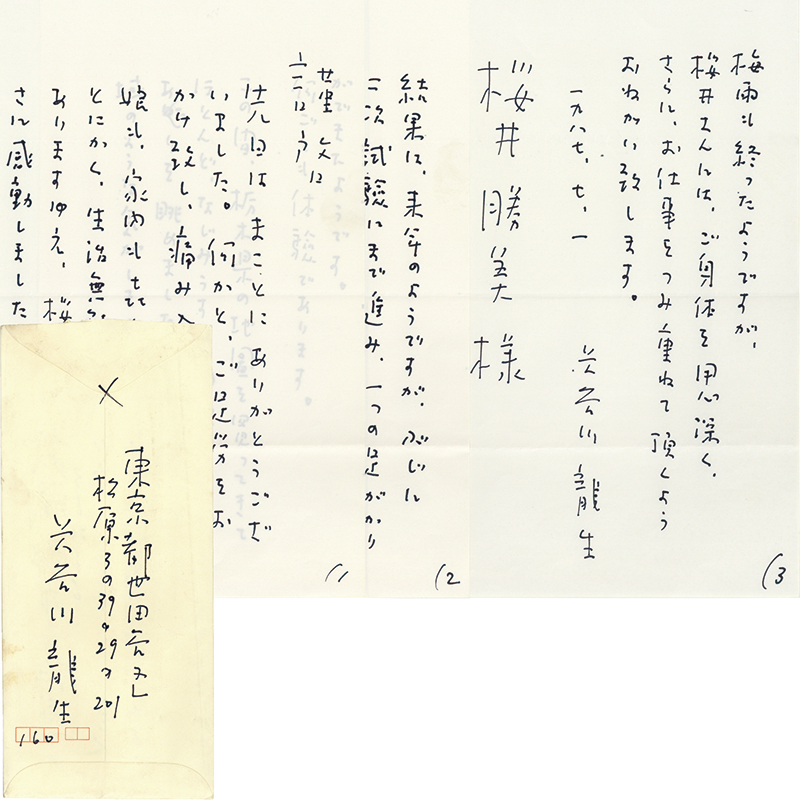 日は まことに ありがとうござ
いました。何かと、ご足労をお
かけ致し、痛み入
娘も、家内も
とにかく、生活無
ありますゆえ、桜
さに感動しました
(1
結果は、来年のようですが、ぶじに
二次試験にまで進み、一つの足がかり
(2
梅雨も終ったようですが、
桜井さんには、ご身体を用心深く、
さらに、お仕事をつみ重ねて頂くよう
おねがい致します。
一九八七、七、一
长谷川龍生
桜井勝美様
(3
東京都世田谷区
松原3の39の29の201
长谷川龍生
160